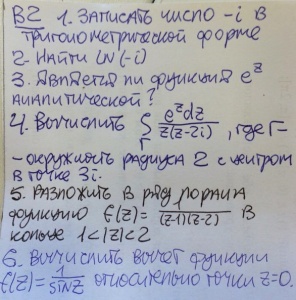 В2 1. Записать число -i в
тригонометрической форме
2. Найти LN(-i)
3. Является ли функция e^z
аналитической?
4. Вычислить ∫_Γ e^z dz / z(z-2i), где Γ-
- окружность радиуса 2 с центром
в точке 3i.
5. Разложить в ряд Лорана
функцию f(z)= 1/(z-1)(z-2) в
кольце 1<|z|<2
6. Вычислить вычет функции
f(z)= 1/sin z относительно точки z=0.